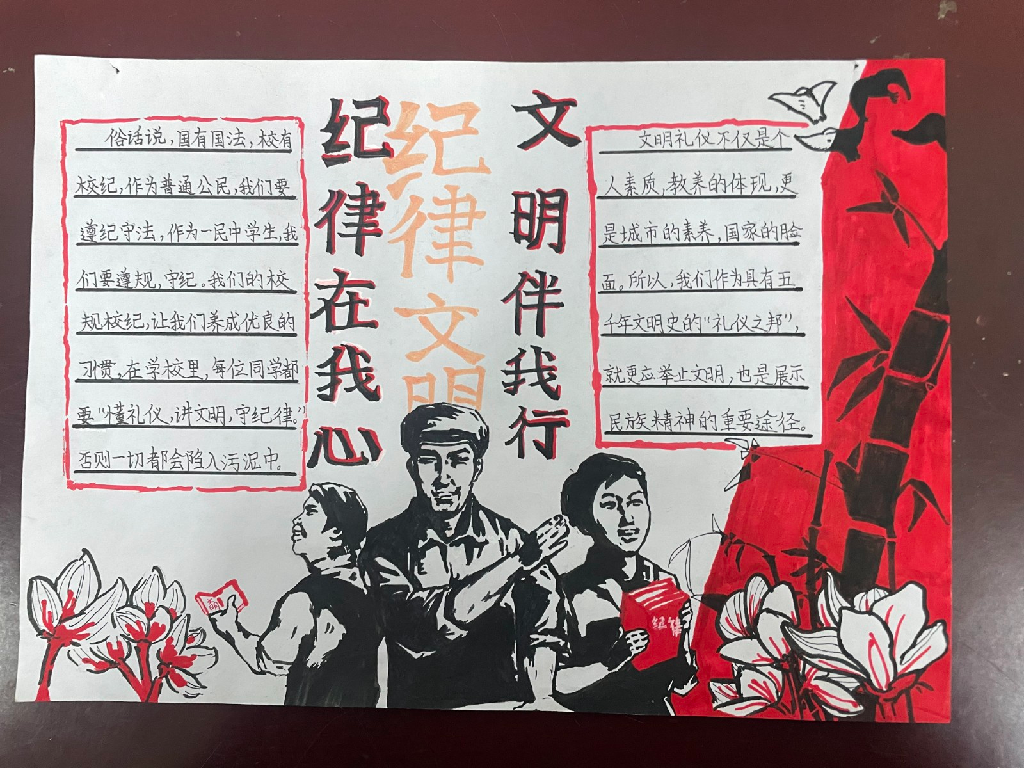 俗话说，国有国法，校有
校纪，作为普通公民，我们要
遵纪守法，作为一民中学生，我
们要遵规，守纪。我们的校
规校纪，让我们养成优良的
习惯，在学校里，每位同学都
要“懂礼仪，讲文明，守纪律。”
否则一切都会陷入污泥中。
纪律在我心
纪律文明
文明伴我行
文明礼仪不仅是个
人素质，教养的体现，更
是城市的素养，国家的脸
面。所以，我们作为具有五
千年文明史的“礼仪之邦”，
就更应举止文明，也是展示
民族精神的重要途径。